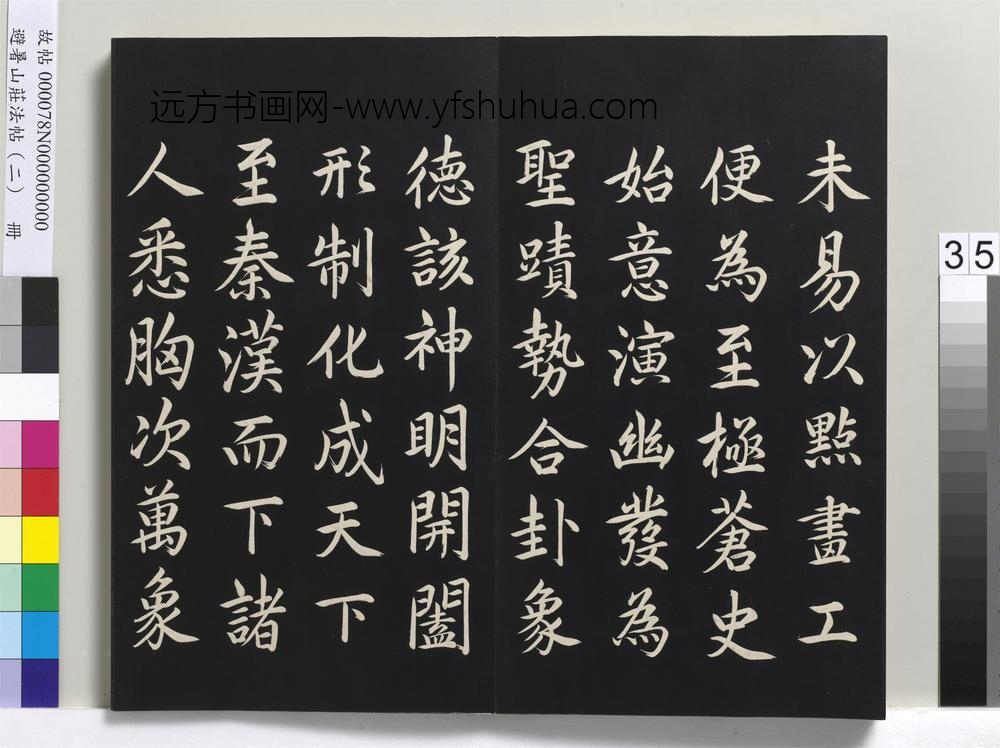 未易以點畫工
便為至極蒼史
始意演幽發為
聖蹟勢合卦象
德該神明開闔
形制化成天下
至秦漢而下諸
人悉胸次萬象
远方书画网-www.yfshuhua.com
故帖 000078N000000000
避暑山莊法帖（二） 冊
35